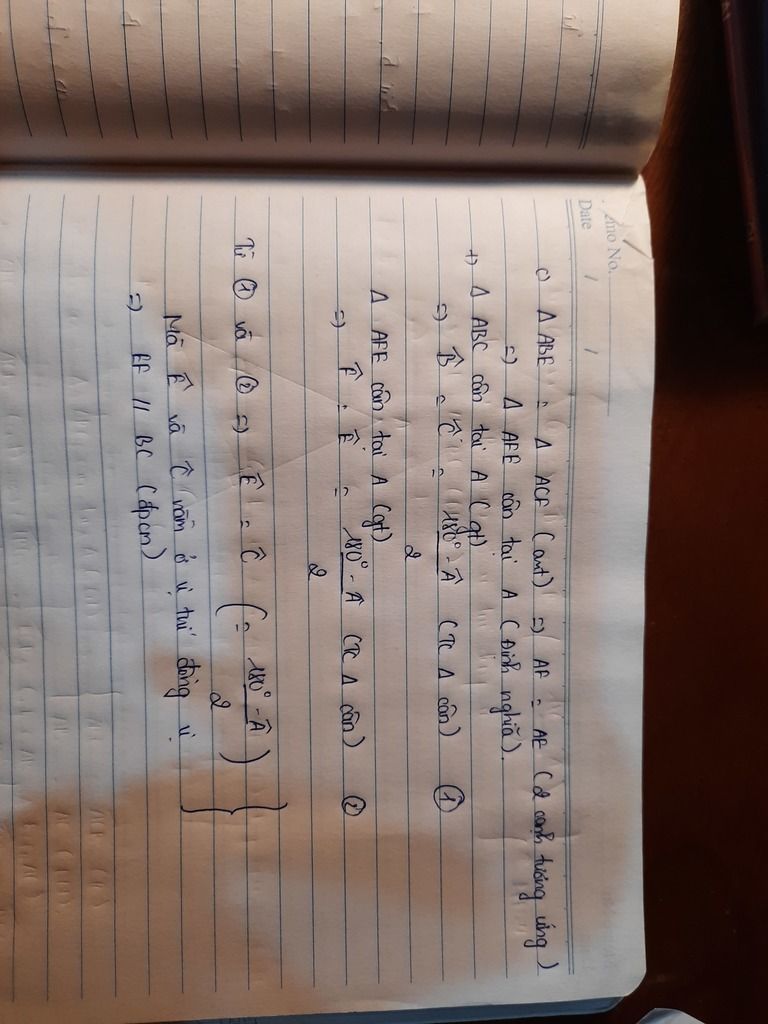 Memo No.
Date / /
c) Δ ABE = Δ ACF (cmt) => AF = AE (2 cạnh tương ứng)
=> Δ AFE cân tại A (Định nghĩa).
+) Δ ABC cân tại A (gt)
=> B̂ = Ĉ = (180° - Â)/2 (TC Δ cân) ①
Δ AFE cân tại A (gt)
=> F̂ = Ê = (180° - Â)/2 (TC Δ cân) ②
Từ ① và ② => Ê = Ĉ (= (180° - Â)/2)
Mà Ê và Ĉ nằm ở vị trí đồng vị
=> EF // BC (đpcm)